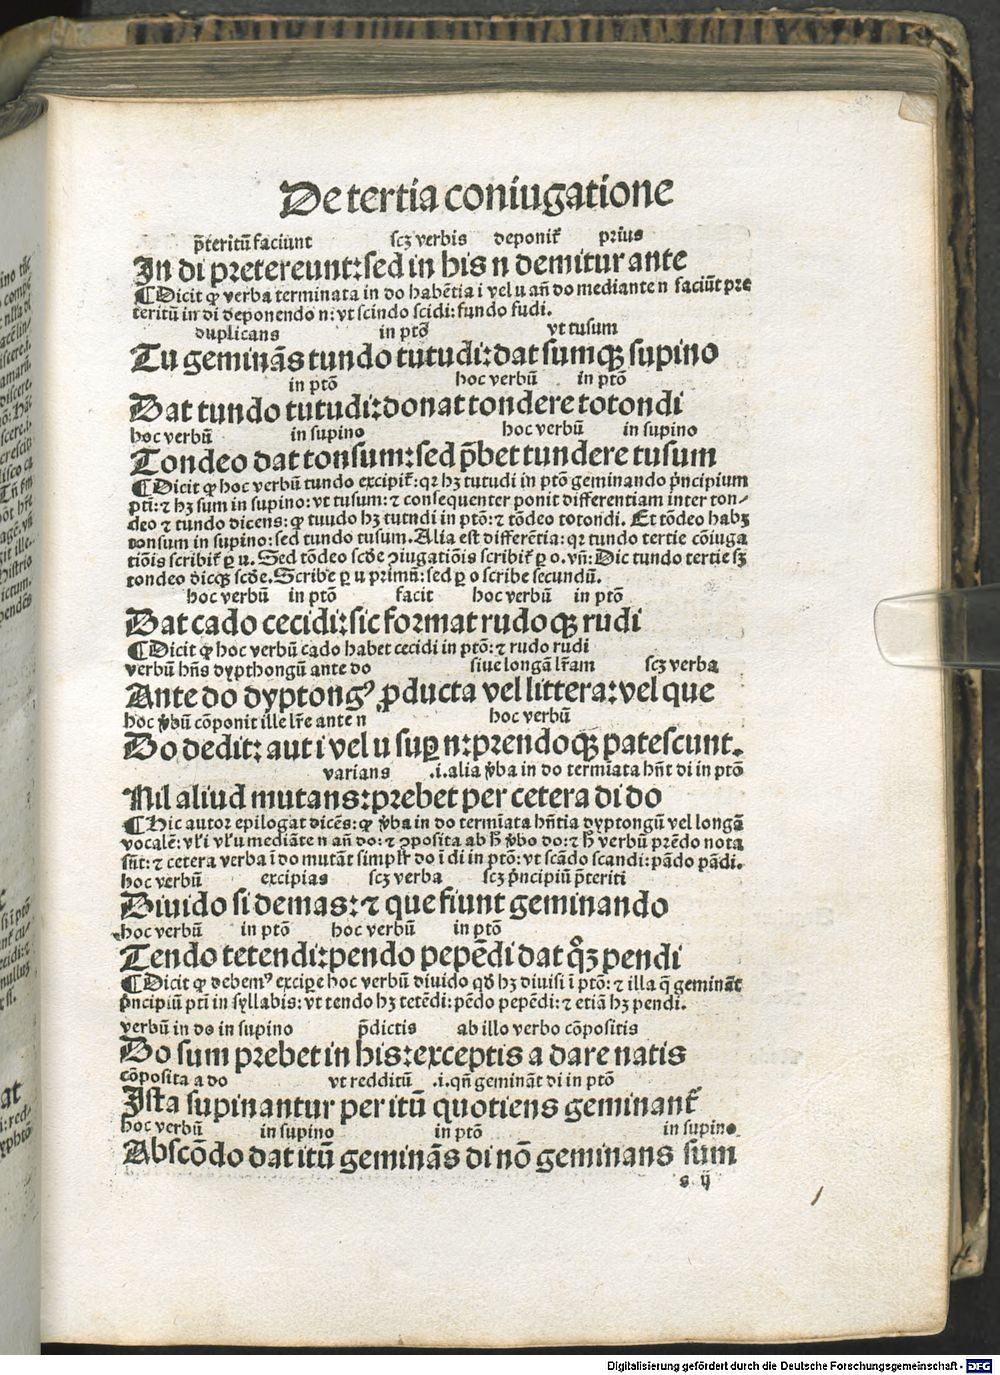 De tertia coniugatione
p̄teritū faciunt scꝫ verbis deponit᷑ prius
In di pretereunt: sed in his n demitur ante
¶ Dicit ꝙ verba terminata in do habētia i vel u añ do mediante n faciūt pre
teritū in di deponendo n: vt scindo scidi: fundo fudi.
duplicans in ptō vt tusum
Tu geminās tundo tutudi: dat sumqꝫ supino
in ptō hoc verbū in ptō
Dat tundo tutudi: donat tondere totondi
hoc verbū in supino hoc verbū in supino
Tondeo dat tonsum: sed p̄bet tundere tusum
¶ Dicit ꝙ hoc verbū tundo excipit᷑: qꝛ hꝫ tutudi in ptō geminando p̄ncipium
pti: ⁊ hꝫ sum in supino: vt tusum: ⁊ consequenter ponit differentiam inter ton-
deo ⁊ tundo dicens: ꝙ tuudo hꝫ tutndi in ptō: ⁊ tōdeo totondi. Et tōdeo habꝫ
tonsum in supino: sed tundo tusum. Alia est differētia: qꝛ tundo tertie cōiuga
tiōis scribit᷑ ꝑ u. Sed tōdeo scd̄e ꝯiugatiōis scribit᷑ ꝑ o. vñ: Dic tundo tertie sꝫ
tondeo dicqꝫ scd̄e. Scribe ꝑ u primū: sed ꝑ o scribe secundū.
hoc verbū in ptō facit hoc verbū in ptō
Dat cado cecidi: sic format rudoqꝫ rudi
¶ Dicit ꝙ hoc verbū cado habet cecidi in ptō: ⁊ rudo rudi
verbū hñs dypthongū ante do siue longā lr̄am scꝫ verba
Ante do dyptongꝰ ꝓducta vel littera: vel que
hoc v̄bū cōponit ille lr̄e ante n hoc verbū
Do dedit: aut i vel u suꝑ n: prendoqꝫ patescunt.
varians .i. alia v̄ba in do termīata hñt di in ptō
Nil aliud mutans: prebet per cetera di do
¶ Hic autor epilogat dicēs: ꝙ v̄ba in do termīata hñtia dyptongū vel longā
vocalē: vl’ i vl’ u mediāte n añ do: ⁊ ꝯposita ab h̄ v̄bo do: ⁊ h̄ verbū prēdo nota
sūt: ⁊ cetera verba ī do mutāt simpl’r do ī di in ptō: vt scādo scandi: pādo pādi.
hoc verbū excipias scꝫ verba scꝫ p̄ncipiū p̄teriti
Diuido si demas: ⁊ que fiunt geminando
hoc verbū in ptō hoc verbū in ptō
Tendo tetendi: pendo pepēdi dat qꝫ pendi
¶ Dicit ꝙ debemꝰ exciꝑe hoc verbū diuido qd̄ hꝫ diuisi ī ptō: ⁊ illa q̄ gemināt
p̄ncipiū pti in syllabis: vt tendo hꝫ tetēdi: pēdo pepēdi: ⁊ etiā hꝫ pendi.
verbū in do in supino p̄dictis ab illo verbo cōpositis
Do sum prebet in his: exceptis a dare natis
cōposita a do vt redditū .i. qñ gemināt di in ptō
Ista supinantur per itū quotiens geminant᷑
hoc verbū in supino in ptō in supino
Abscōdo dat itū geminās di nō geminans sum
s ij
Digitalisierung gefördert durch die Deutsche Forschungsgemeinschaft - DFG